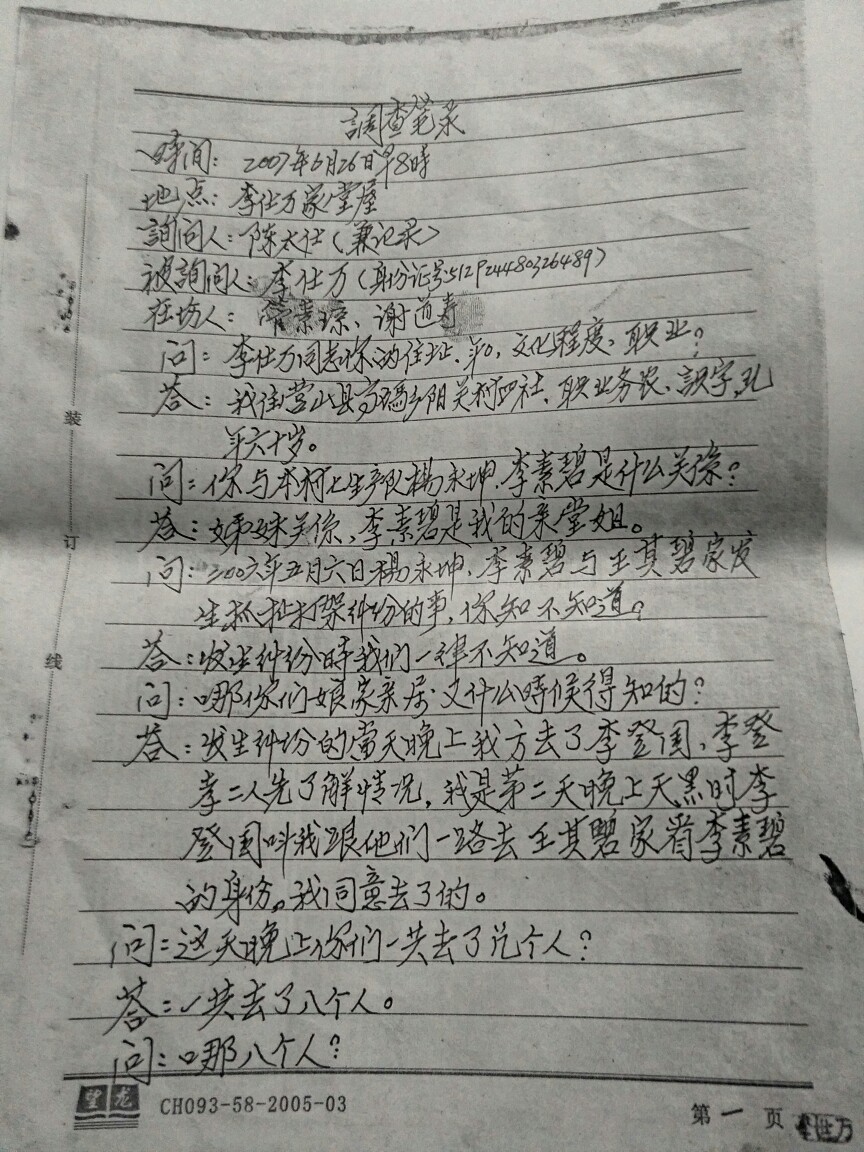 調查笔录
時间：2007年6月26日早8時
地点：李仕万家堂屋
詢问人：陈太仕（兼记录）
被詢问人：李仕万（身份证号:512924480326489）
在场人：素琼、谢道寿
问：李仕万同志你的住址、年令、文化程度、职业？
答：我住营山县高码乡阳关村四社、职业务农、識字、现
年六十岁。
问：你与本村七生产队楊永坤、李素碧是什么关係？
答：姊妹关係，李素碧是我的亲堂姐。
问：2006年五月六日楊永坤、李素碧与王其碧家发
生抓扯打架纠纷的事，你知不知道？
答：发生纠纷時我们一律不知道。
问：哪你们娘家亲属又什么時候得知的？
答：发生纠纷的当天晚上我方去了李登国、李登
孝二人先了解情况，我是第二天晚上天黑时李
登国叫我跟他们一路去王其碧家看李素碧
的身份。我同意去了的。
问：这天晚上你们一共去了几个人？
答：一共去了八个人。
问：哪八个人？
装
订
线
望龙
CH093-58-2005-03
第一页
李仕万